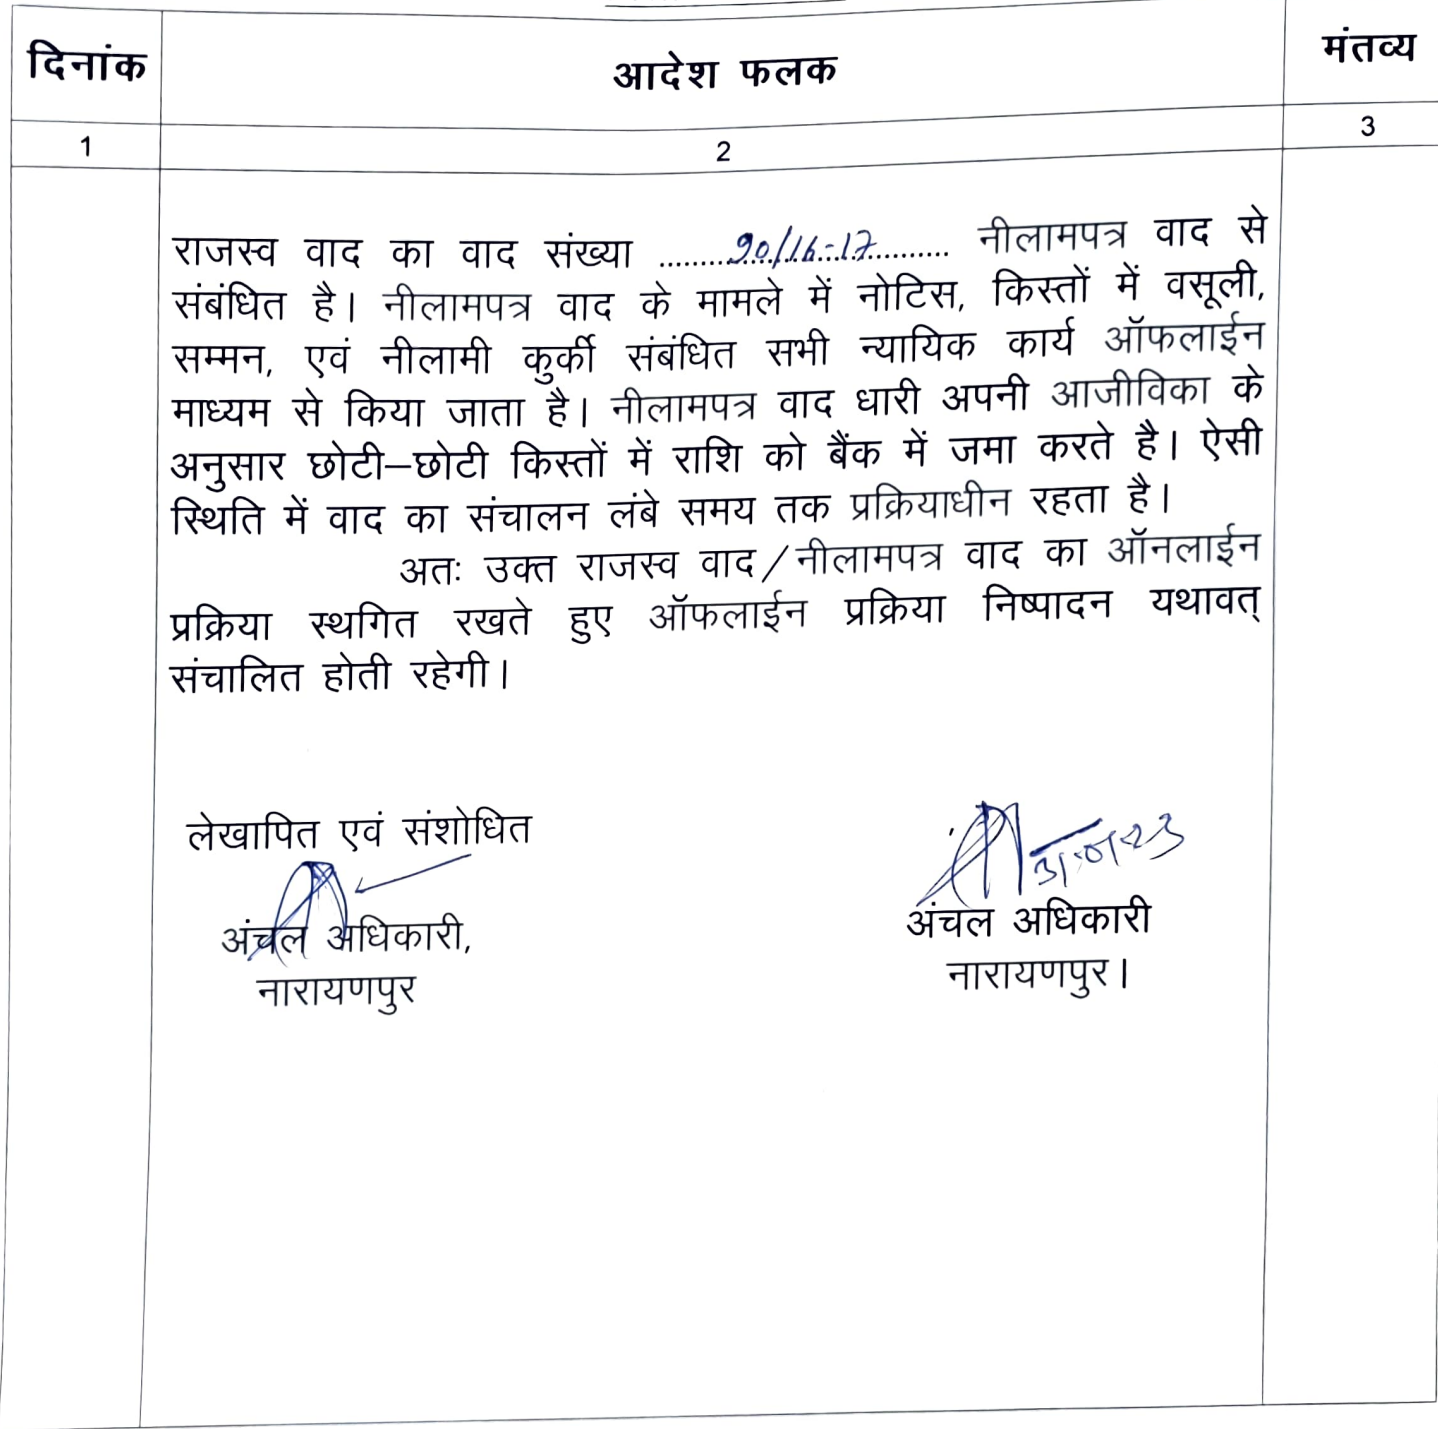 दिनांक
आदेश फलक
मंतव्य
1
2
3
राजस्व वाद का वाद संख्या ........90/16-17........ नीलामपत्र वाद से
संबंधित है। नीलामपत्र वाद के मामले में नोटिस, किस्तों में वसूली,
सम्मन, एवं नीलामी कुर्की संबंधित सभी न्यायिक कार्य ऑफलाईन
माध्यम से किया जाता है। नीलामपत्र वाद धारी अपनी आजीविका के
अनुसार छोटी–छोटी किस्तों में राशि को बैंक में जमा करते है। ऐसी
स्थिति में वाद का संचालन लंबे समय तक प्रक्रियाधीन रहता है।
अतः उक्त राजस्व वाद/नीलामपत्र वाद का ऑनलाईन
प्रक्रिया स्थगित रखते हुए ऑफलाईन प्रक्रिया निष्पादन यथावत्
संचालित होती रहेगी।
लेखापित एवं संशोधित
अंचल अधिकारी,
नारायणपुर
अंचल अधिकारी
नारायणपुर।